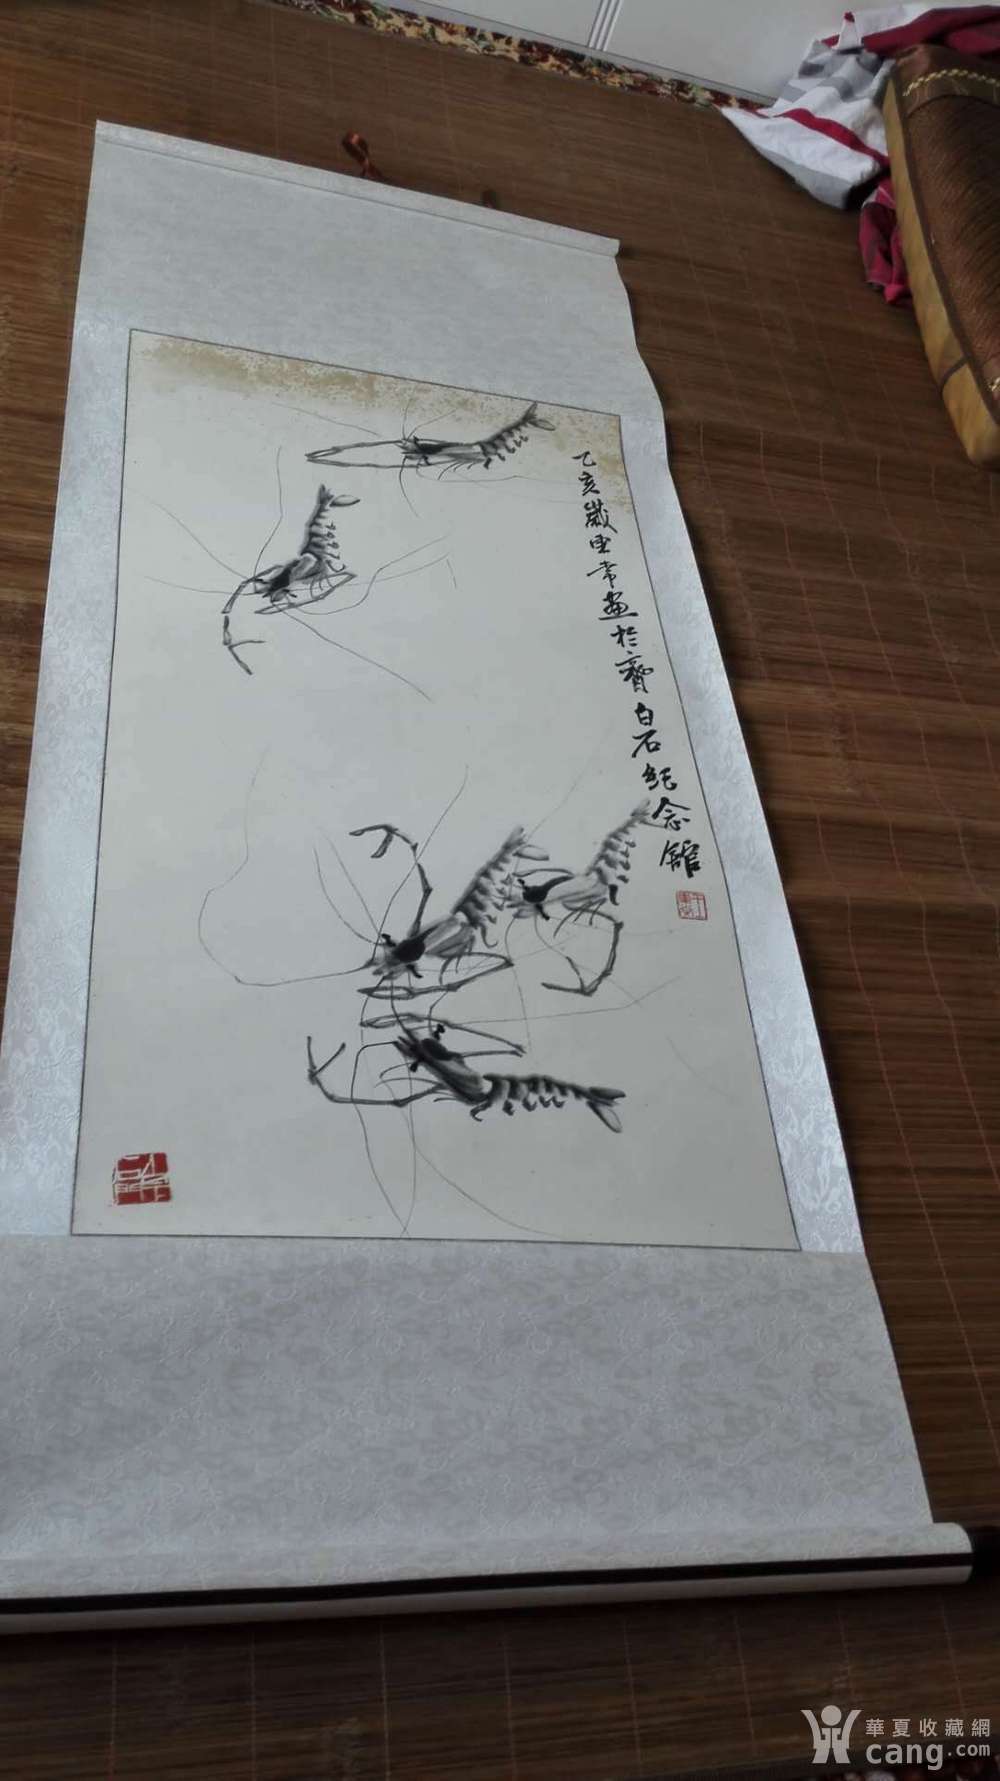 乙亥歲里常畫於齊白石紀念館
華夏收藏網
cang.com